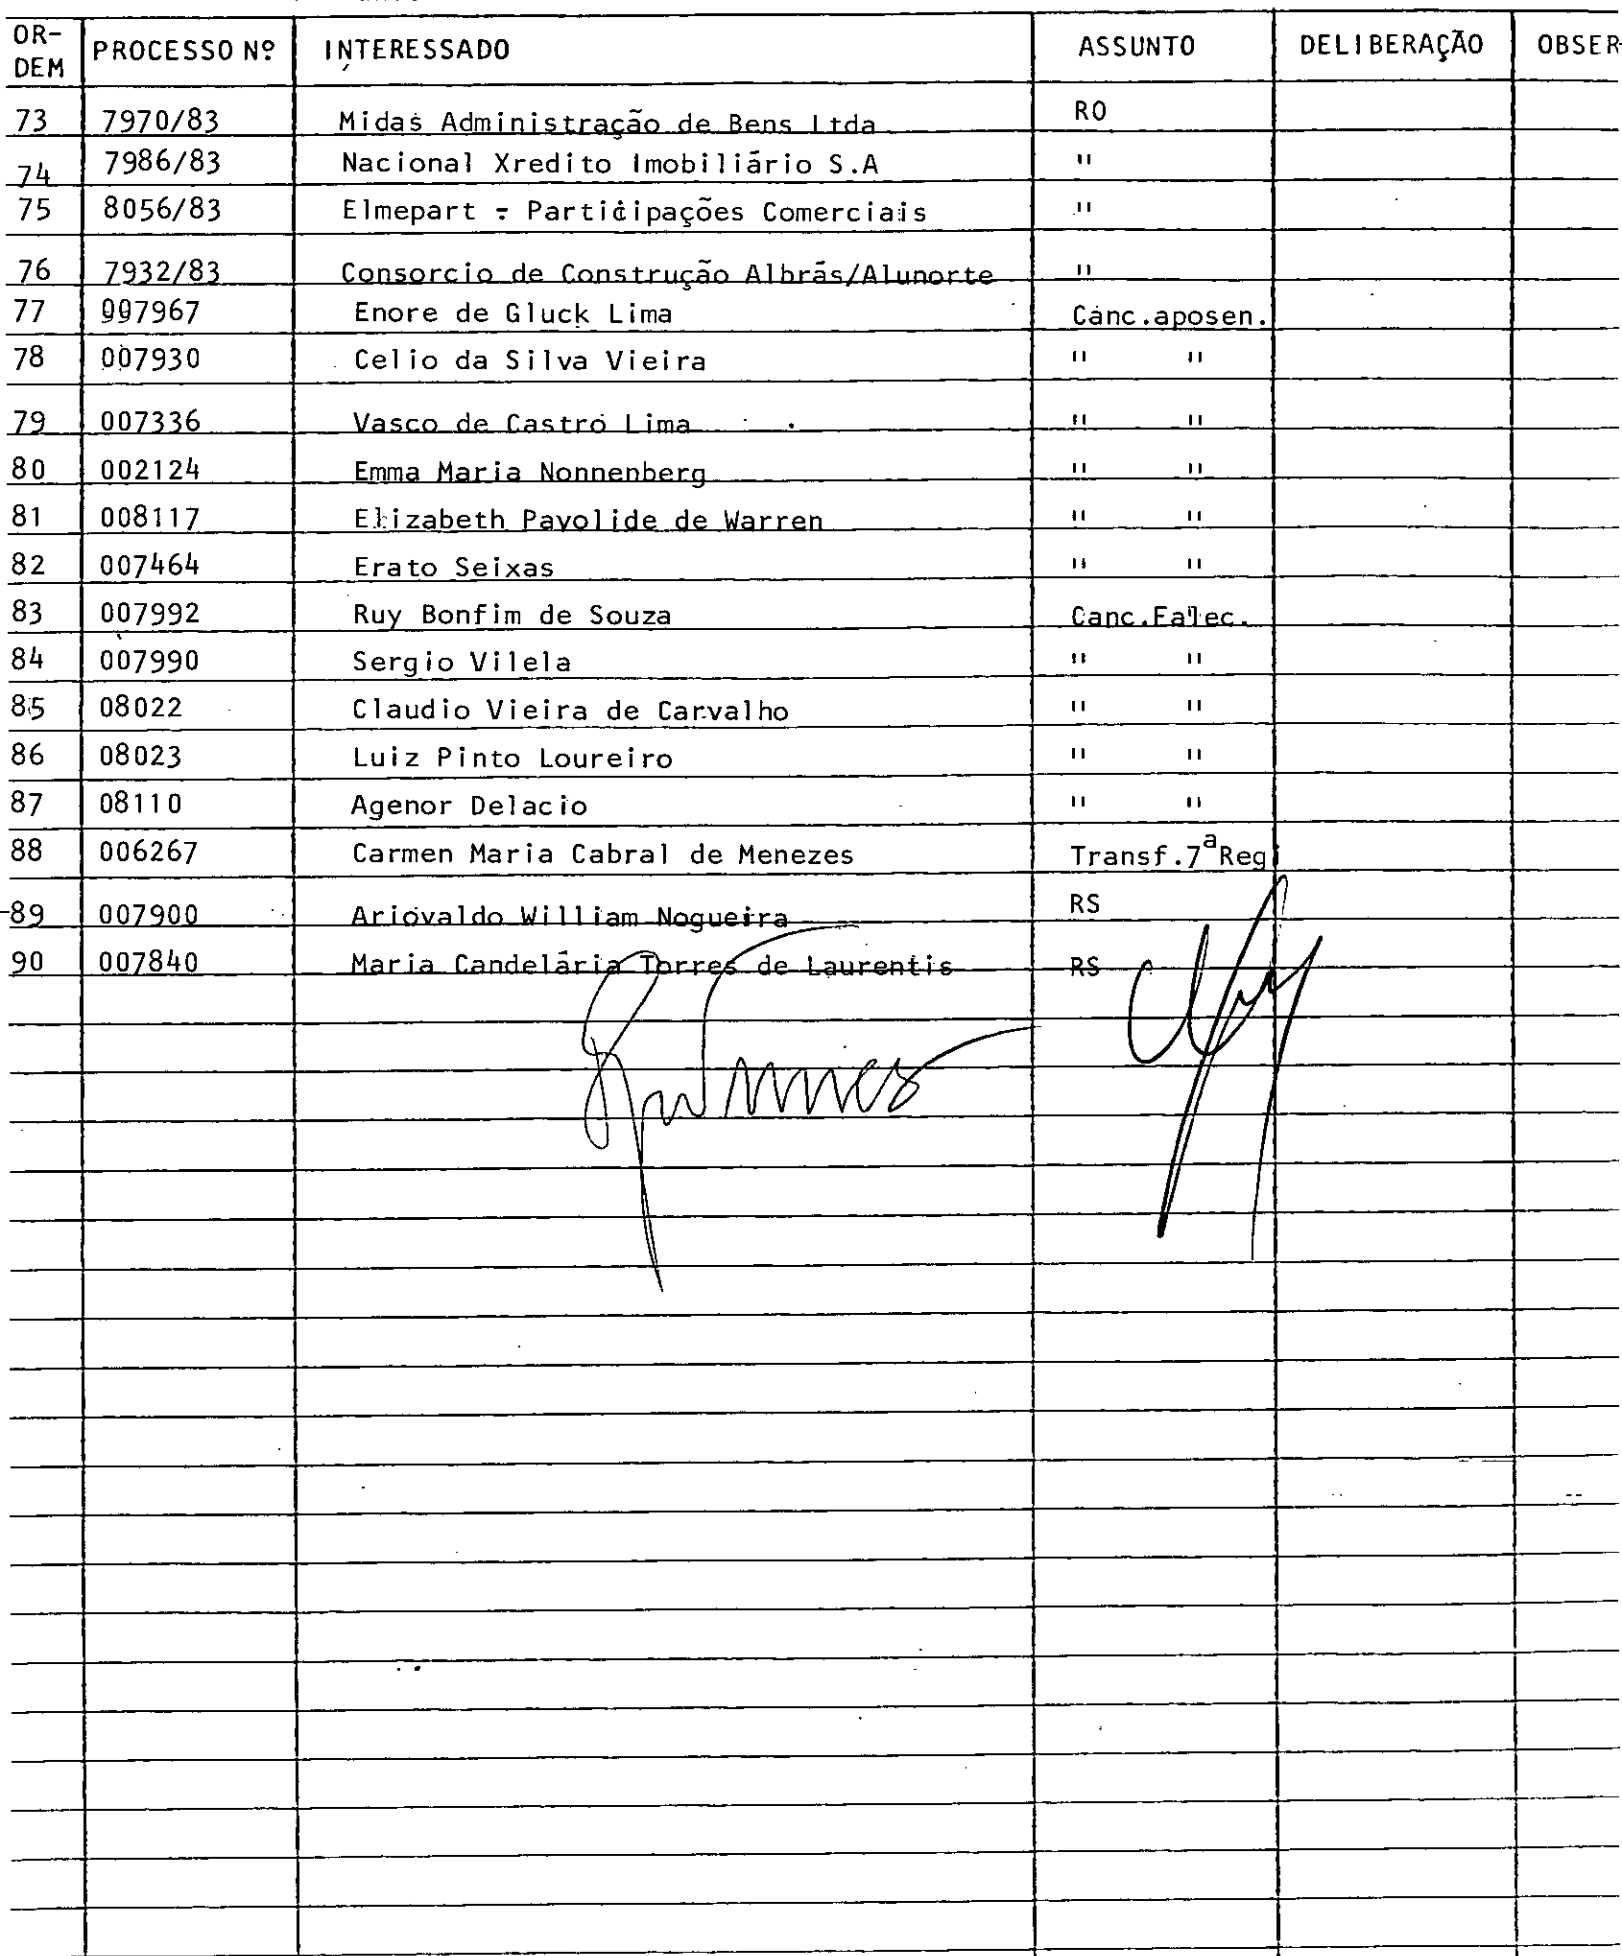 OR-DEM PROCESSO Nº INTERESSADO ASSUNTO DELIBERAÇÃO OBSER-
73 7970/83 Midas Administração de Bens Ltda RO
74 7986/83 Nacional Xredito Imobiliário S.A "
75 8056/83 Elmepart - Participações Comerciais "
76 7932/83 Consorcio de Construção Albrás/Alunorte "
77 007967 Enore de Gluck Lima Canc.aposen.
78 007930 Celio da Silva Vieira " "
79 007336 Vasco de Castro Lima " "
80 002124 Emma Maria Nonnenberg " "
81 008117 Elizabeth Pavolide de Warren " "
82 007464 Erato Seixas " "
83 007992 Ruy Bonfim de Souza Canc.Falec.
84 007990 Sergio Vilela " "
85 08022 Claudio Vieira de Carvalho " "
86 08023 Luiz Pinto Loureiro " "
87 08110 Agenor Delacio " "
88 006267 Carmen Maria Cabral de Menezes Transf.7ªReg
89 007900 Ariovaldo William Nogueira RS
90 007840 Maria Candelária Torres de Laurentis RS